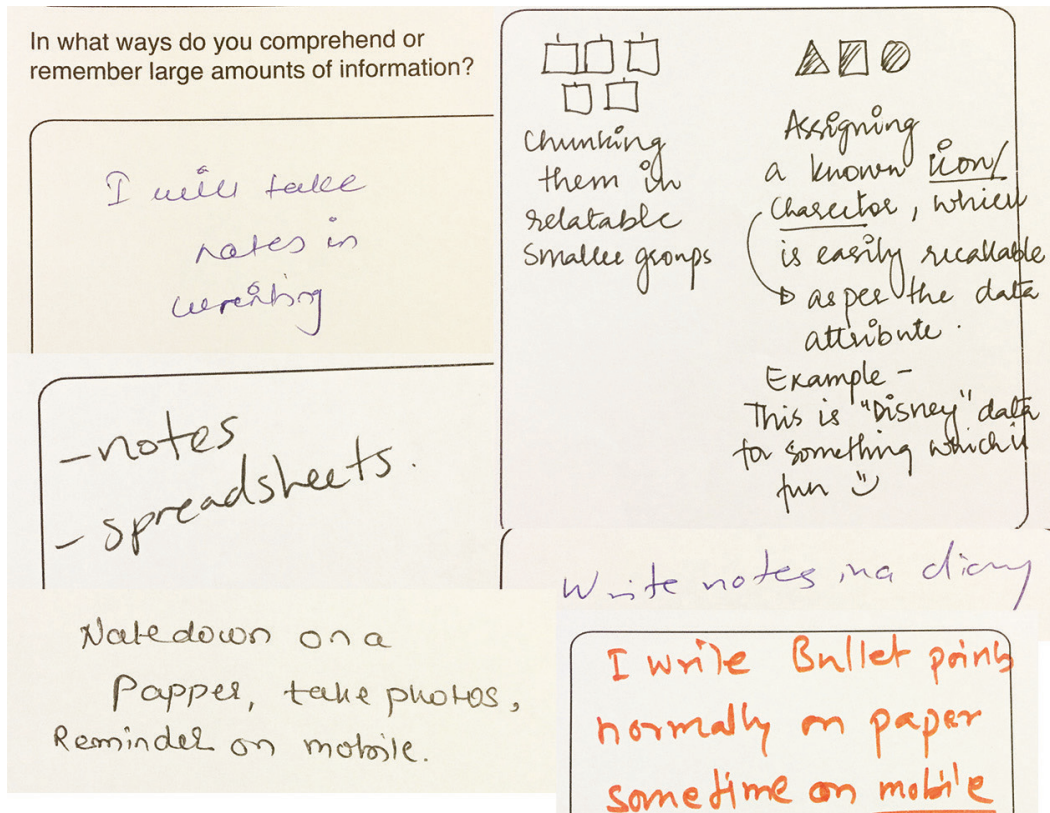 In what ways do you comprehend or
remember large amounts of information?
I will take
notes in
wreiting
- notes
- spreadsheets.
Natedown on a
Papper, take photos,
Reminder on mobile.
Chunking
them in
relatable
Smaller groups
Assigning
a known icon/
Charector, which
is easily recallable
as per the data
attribute.
Example -
This is "Disney" data
for something which is
fun
Write notes in a diary
I write Bullet points
normally on paper
sometime on mobile